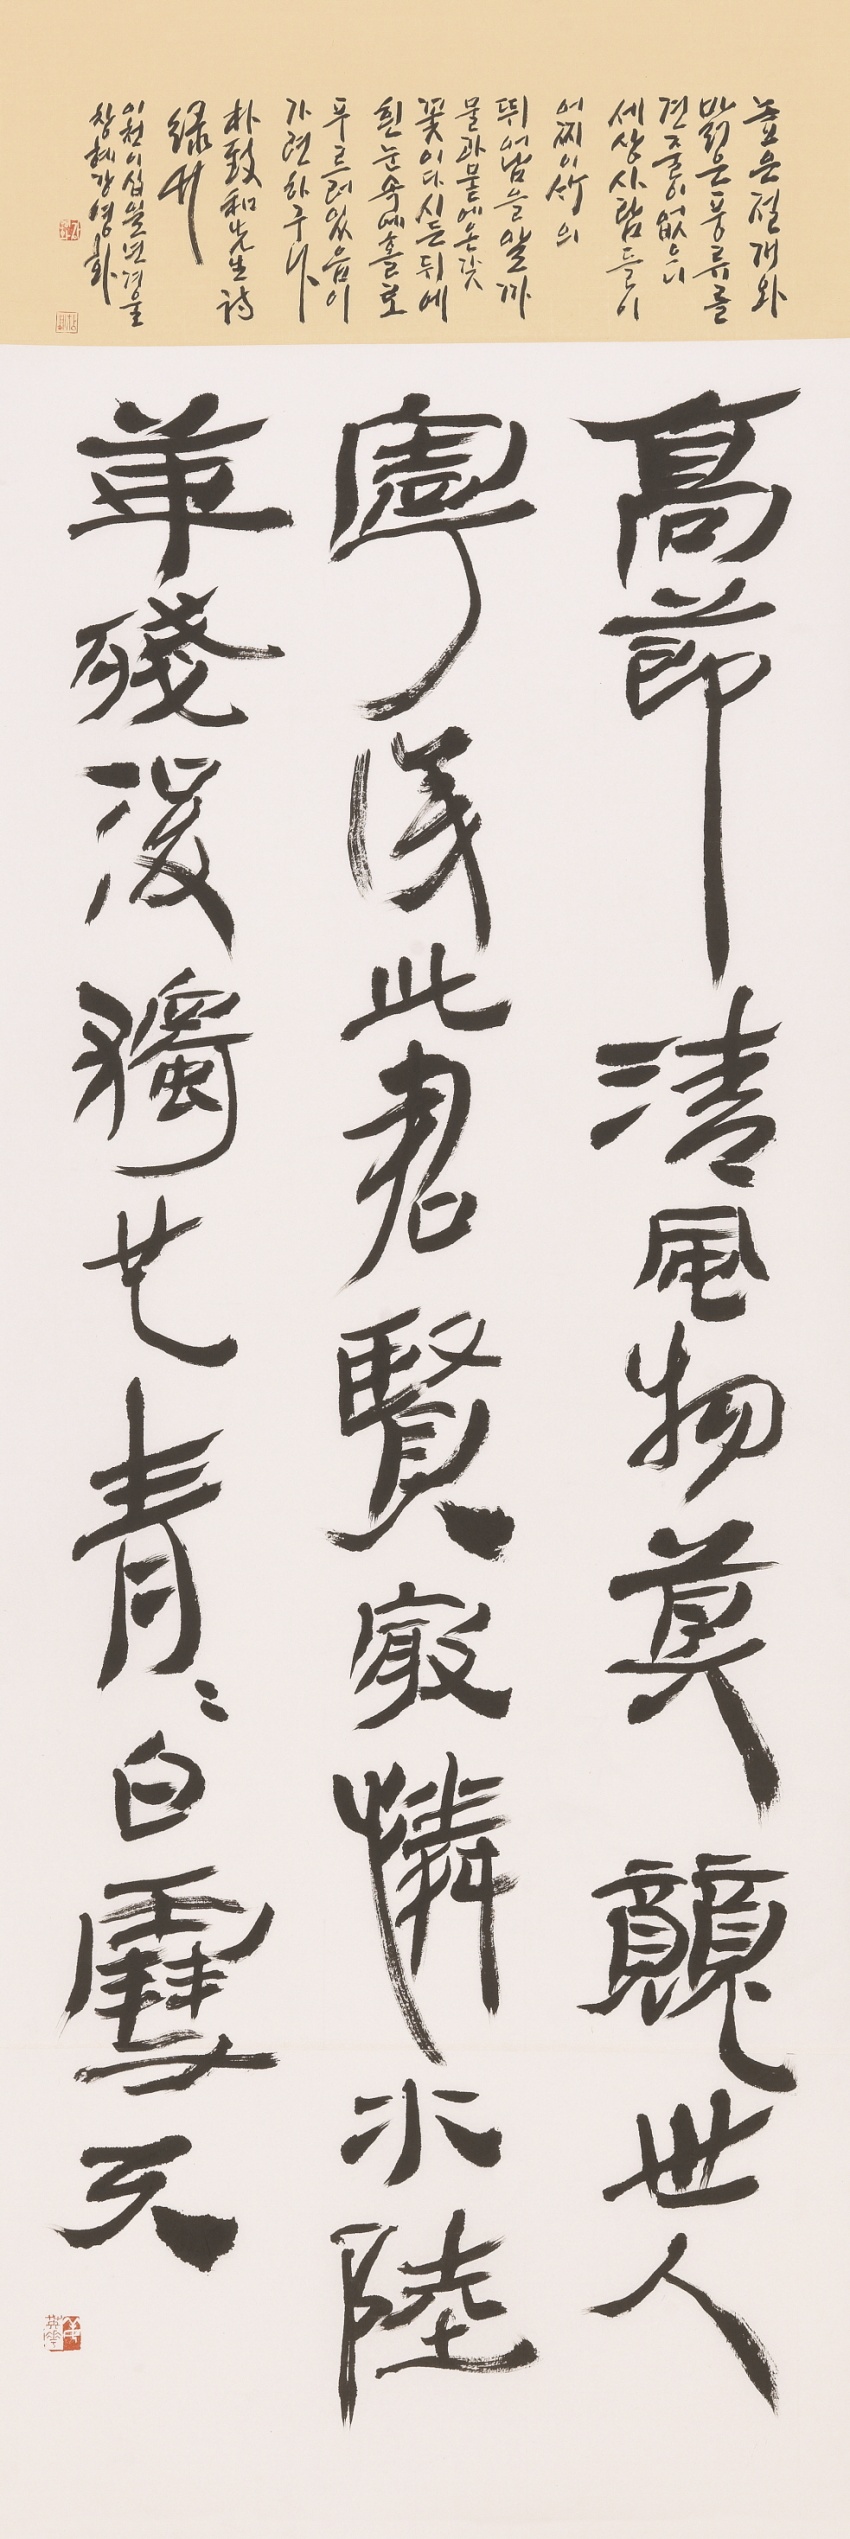 높은절개와
맑은풍류를
견줄이없으니
세상사람들이
어찌이竹의
뛰어남을알까
물과뭍에온갖
꽃이다시든뒤에
흰눈속에홀로
푸르러있음이
가련하구나
朴致和先生詩
綠竹
창혜강영화
高節清風物莫競世人
寧識此君賢最憐水陸
華殘後獨也青〻白雪天